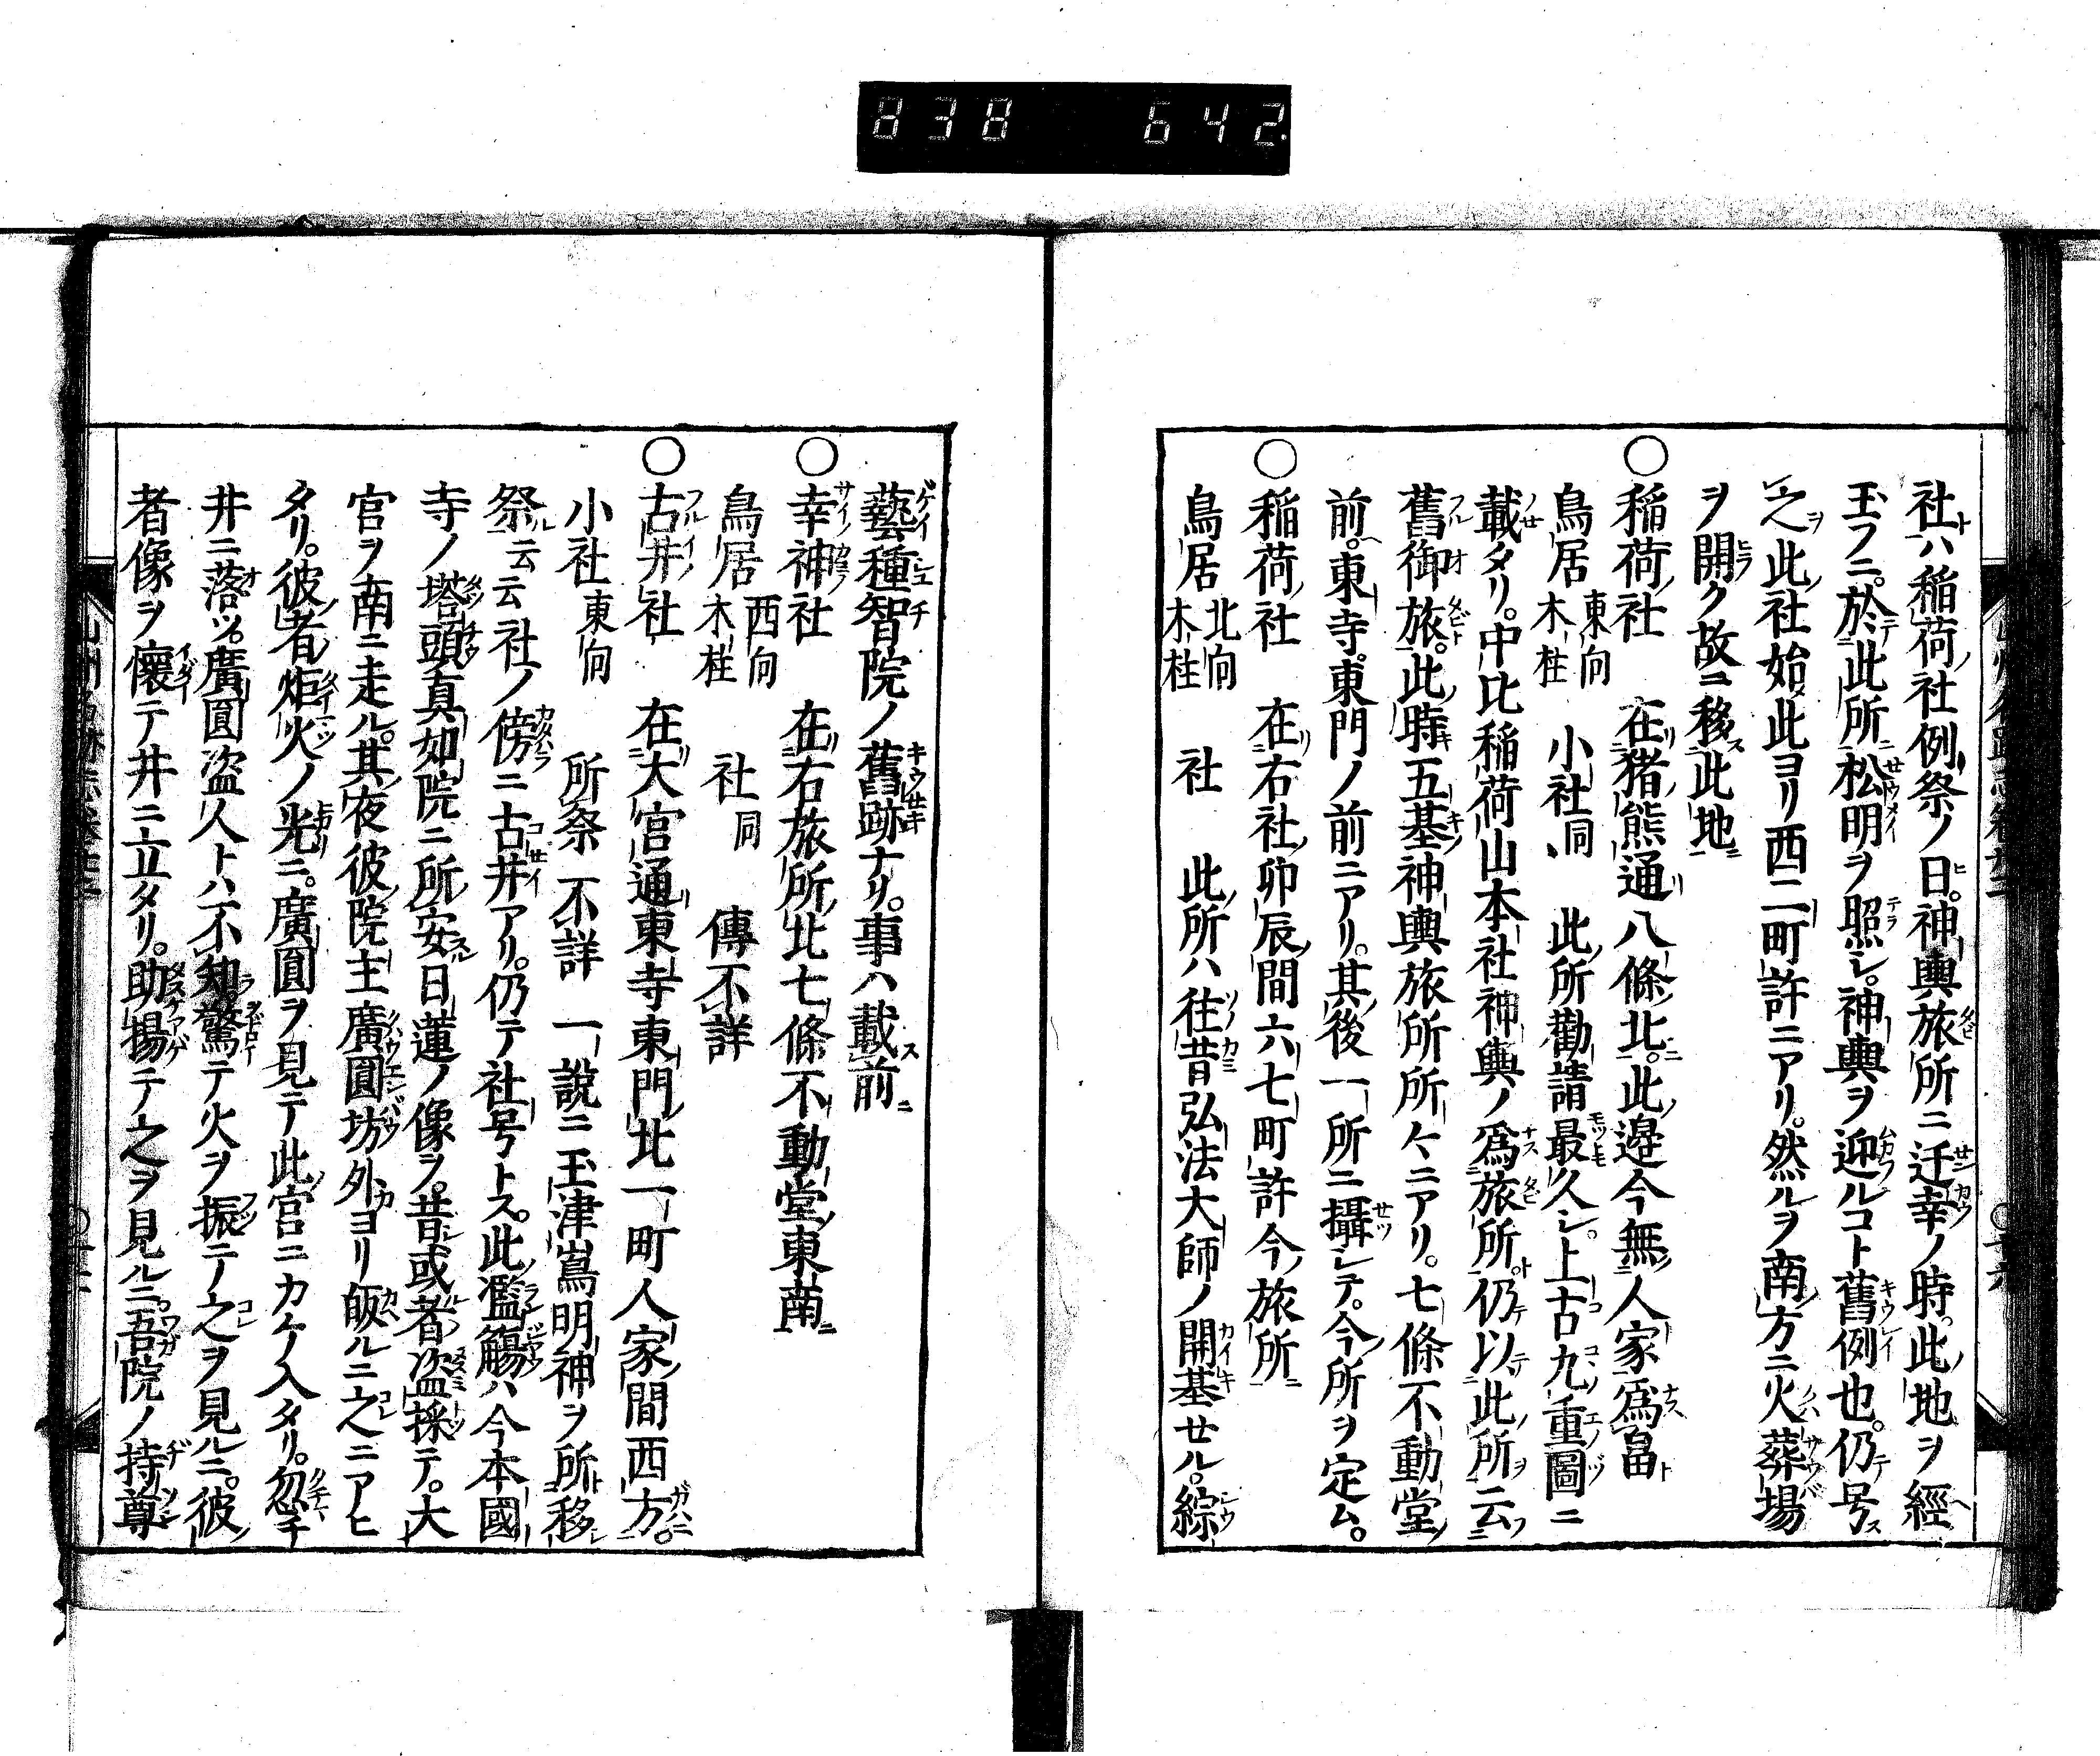 838 642
社ハ稲荷ノ社例祭ノ日。神輿旅所ニ迁幸ノ時。此地ヲ經
玉フニ。於此所松明ヲ照シ。神輿ヲ迎ルコト舊例也。仍号
之此社始此ヨリ西二町許ニアリ。然ルヲ南方ニ火葬場
ヲ開ク故ニ移此地
○稲荷社 在猪熊通八條北。此邉今無人家爲畠
鳥居 東向 木柱 小社 同 此所勸請最久シ。上古九重圖ニ
載タリ。中比稲荷山本社神輿ノ爲旅所仍以此所云
舊御旅。此時五基神輿旅所所々ニアリ。七條不動堂
前。東寺。東門ノ前ニアリ。其後一所ニ攝シテ。今所ヲ定ム。
○稲荷社 在右社卯辰間六七町許今旅所
鳥居 北向 木柱 社 此所ハ往昔弘法大師ノ開基セル。綜
藝種智院ノ舊跡ナリ。事ハ載前
○幸神社 在右旅所北七條不動堂東南
鳥居 西向 木柱 社 同 傳不詳
○古井社 在大宮通東寺東門北一町人家間西方。
小社 東向 所祭不詳 一說ニ玉津嶌明神ヲ所移
祭云云社ノ傍ニ古井アリ。仍テ社号トス。此濫觴ハ今本國
寺ノ塔頭真如院ニ所安日蓮ノ像ヲ。昔或者盗採テ。大
宮ヲ南ニ走ル。其夜彼院主廣圓坊外ヨリ皈ルニ之ニアヒ
タリ。彼者炬火ノ光ニ。廣圓ヲ見テ此宮ニカケ入タリ。忽チ
井ニ落ツ。廣圓盗人トハ不知驚テ火ヲ振ニ之ヲ見ルニ。彼
者像ヲ懷テ井ニ立タリ。助揚テ之ヲ見ルニ吾院ノ持尊